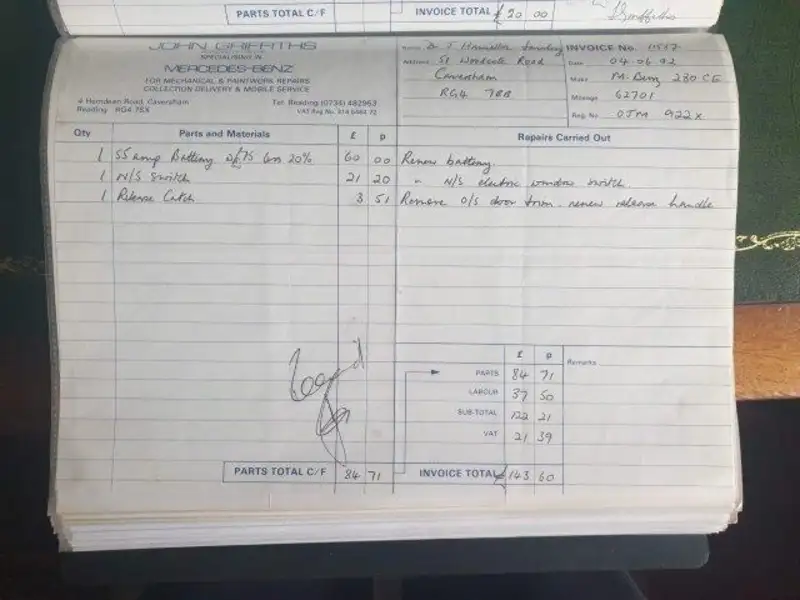 PARTS TOTAL C/F
INVOICE TOTAL £20 00
JOHN GRIFFITHS
SPECIALISING IN
MERCEDES-BENZ
FOR MECHANICAL & PAINTWORK REPAIRS
COLLECTION DELIVERY & MOBILE SERVICE
4 Hemdean Road, Caversham
Reading RG4 7SX
Tel: Reading (0734) 482963
VAT Reg No. 314 0464 72
Name Dr J
Address 51 Woodcote Road
Caversham
RG4 7BB
INVOICE No.
Date 04.06.92
Make M. Benz 280 CE
Mileage 62701
Reg. No OJM 922X
Qty Parts and Materials £ p Repairs Carried Out
1 55 amp Battery £75 less 20% 60 00 Renew battery.
1 N/S Switch 21 20 " N/S electric window switch.
1 Release Catch 3 51 Remove O/S door trim. renew release handle
£ p
Remarks
PARTS 84 71
LABOUR 37 50
SUB-TOTAL 122 21
VAT 21 39
PARTS TOTAL C/F 84 71
INVOICE TOTAL £143 60